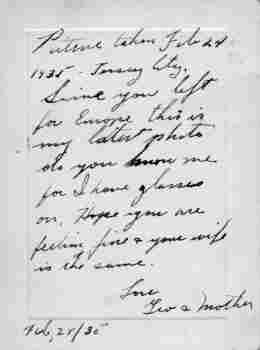 Picture taken Feb 24
1935 - Jersey City.
Since you left
for Europe this is
my latest photo
do you know me
for I have glasses
on. Hope you are
feeling fine & your wife
is the same.
Love
Geo & Mother
Feb, 24/35